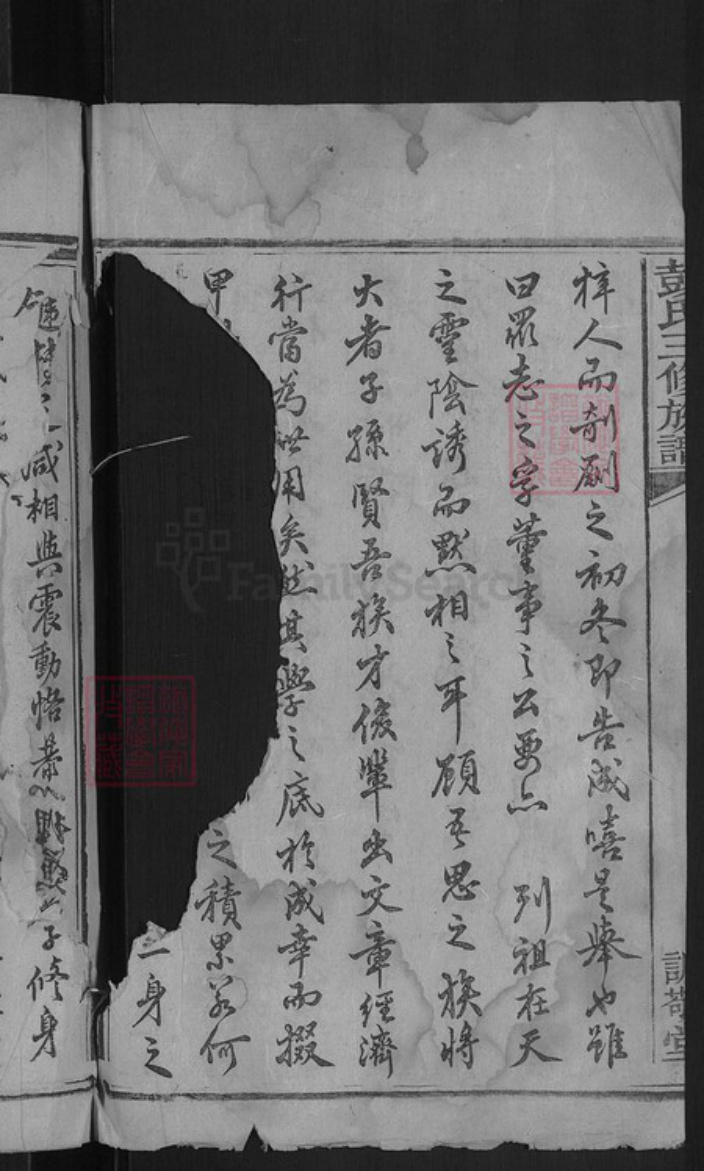 彭氏三修族譜
敬堂
梓人而剞劂之初冬即告成嘻是舉也雖
曰眾志之孚董事之公要亦 列祖在天
之靈陰誘而默相之耳顧吾思之族將
大者子孫賢吾族才俊輩出文章經濟
行當為世用矣然其學之底於成幸而掇
甲
之積累若何
一身之
咸相與震動恪恭
子修身
FamilySearch